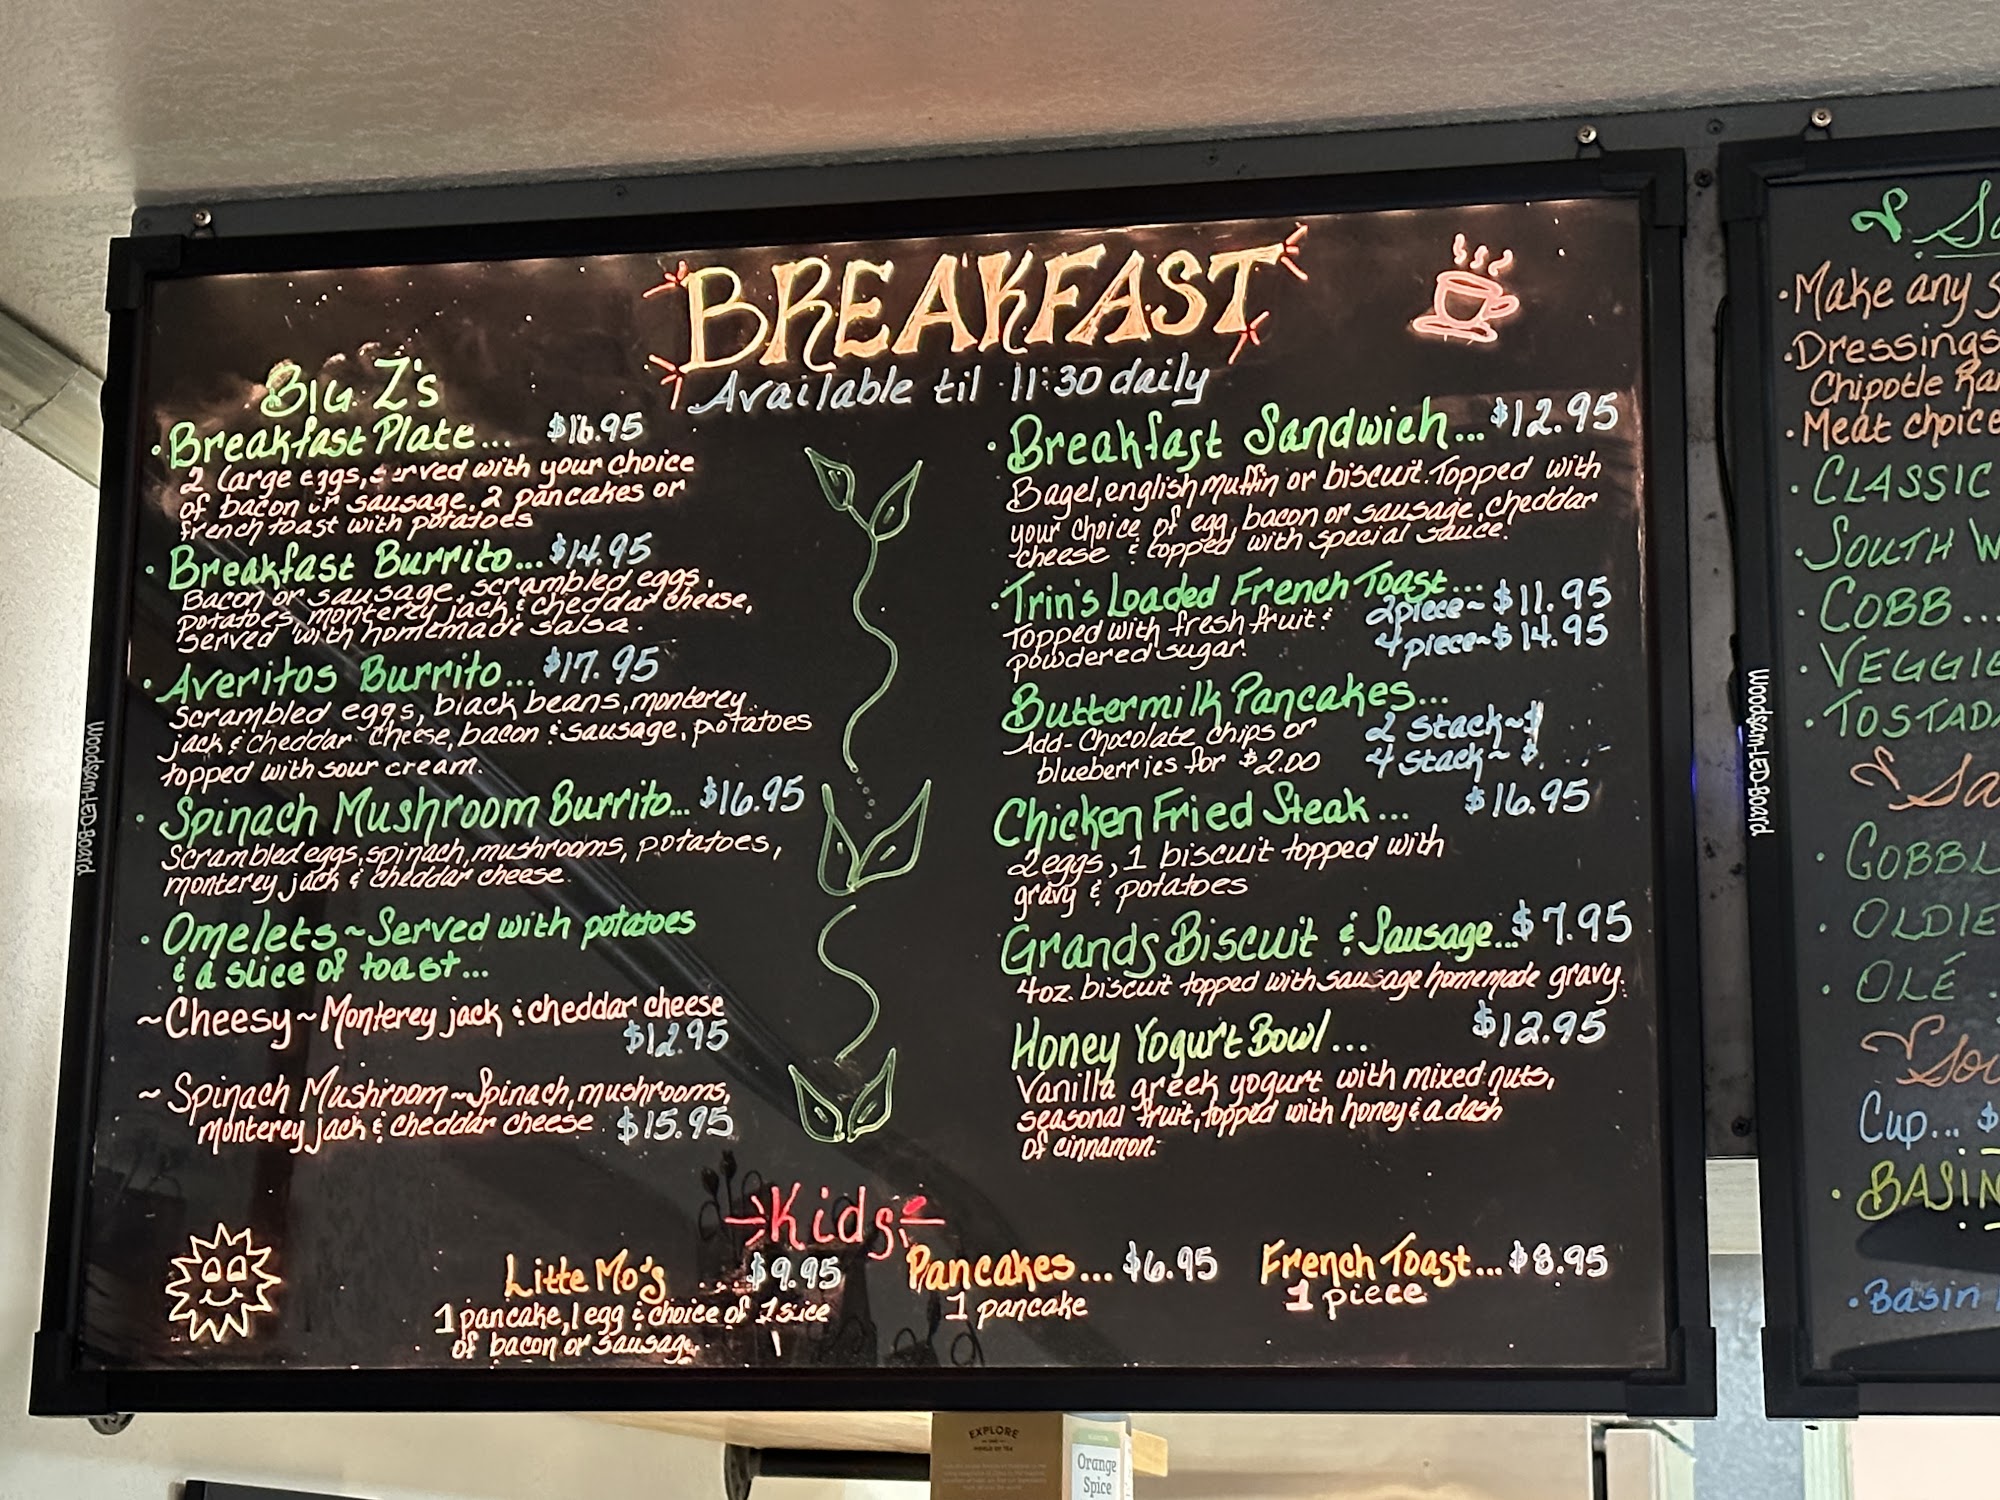 BREAKFAST
Available til 11:30 daily
BIG Z's
• Breakfast Plate... $16.95
2 large eggs, served with your choice
of bacon or sausage, 2 pancakes or
french toast with potatoes
• Breakfast Burrito... $14.95
Bacon or sausage, scrambled eggs,
potatoes, monterey jack & cheddar cheese,
served with homemade salsa.
• Averitos Burrito... $17.95
Scrambled eggs, black beans, monterey
jack & cheddar cheese, bacon & sausage, potatoes
topped with sour cream.
• Spinach Mushroom Burrito... $16.95
Scrambled eggs, spinach, mushrooms, potatoes,
monterey jack & cheddar cheese.
• Omelets ~ Served with potatoes
& a slice of toast...
~ Cheesy ~ Monterey jack & cheddar cheese
$12.95
~ Spinach Mushroom ~ Spinach, mushrooms,
monterey jack & cheddar cheese $15.95
• Breakfast Sandwich... $12.95
Bagel, english muffin or biscuit. Topped with
your choice of egg, bacon or sausage, cheddar
cheese & topped with special sauce.
• Trin's Loaded French Toast...
Topped with fresh fruit & 2 piece ~ $11.95
powdered sugar. 4 piece ~ $14.95
Buttermilk Pancakes...
Add - Chocolate chips or 2 stack ~ $
blueberries for $2.00 4 stack ~ $
Chicken Fried Steak... $16.95
2 eggs, 1 biscuit topped with
gravy & potatoes
Grands Biscuit & Sausage... $7.95
4oz. biscuit topped with sausage homemade gravy.
Honey Yogurt Bowl... $12.95
Vanilla greek yogurt with mixed nuts,
seasonal fruit, topped with honey & a dash
of cinnamon.
Kids
Litte Mo's ... $9.95
1 pancake, 1 egg & choice of 1 slice
of bacon or sausage
Pancakes... $6.95
1 pancake
French Toast... $8.95
1 piece
Woodsam-LED-Board
Woodsam-LED-Board
• Make any
• Dressings
Chipotle
• Meat choice
• CLASSIC
• SOUTH
• COBB...
• VEGGIE
• TOSTADA
• GOBBL
• OLDIE
• OLÉ
Cup... $
• BASIN
• Basin
EXPLORE
WORLD OF TEA
Orange
Spice